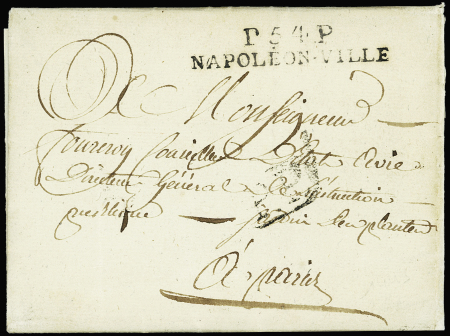 P 54 P
NAPOLÉON-VILLE
A Monseigneur
fourcroy Conseiller D'état À vie
Directeur Général De L'instruction
publique au jardin des plantes
À paris